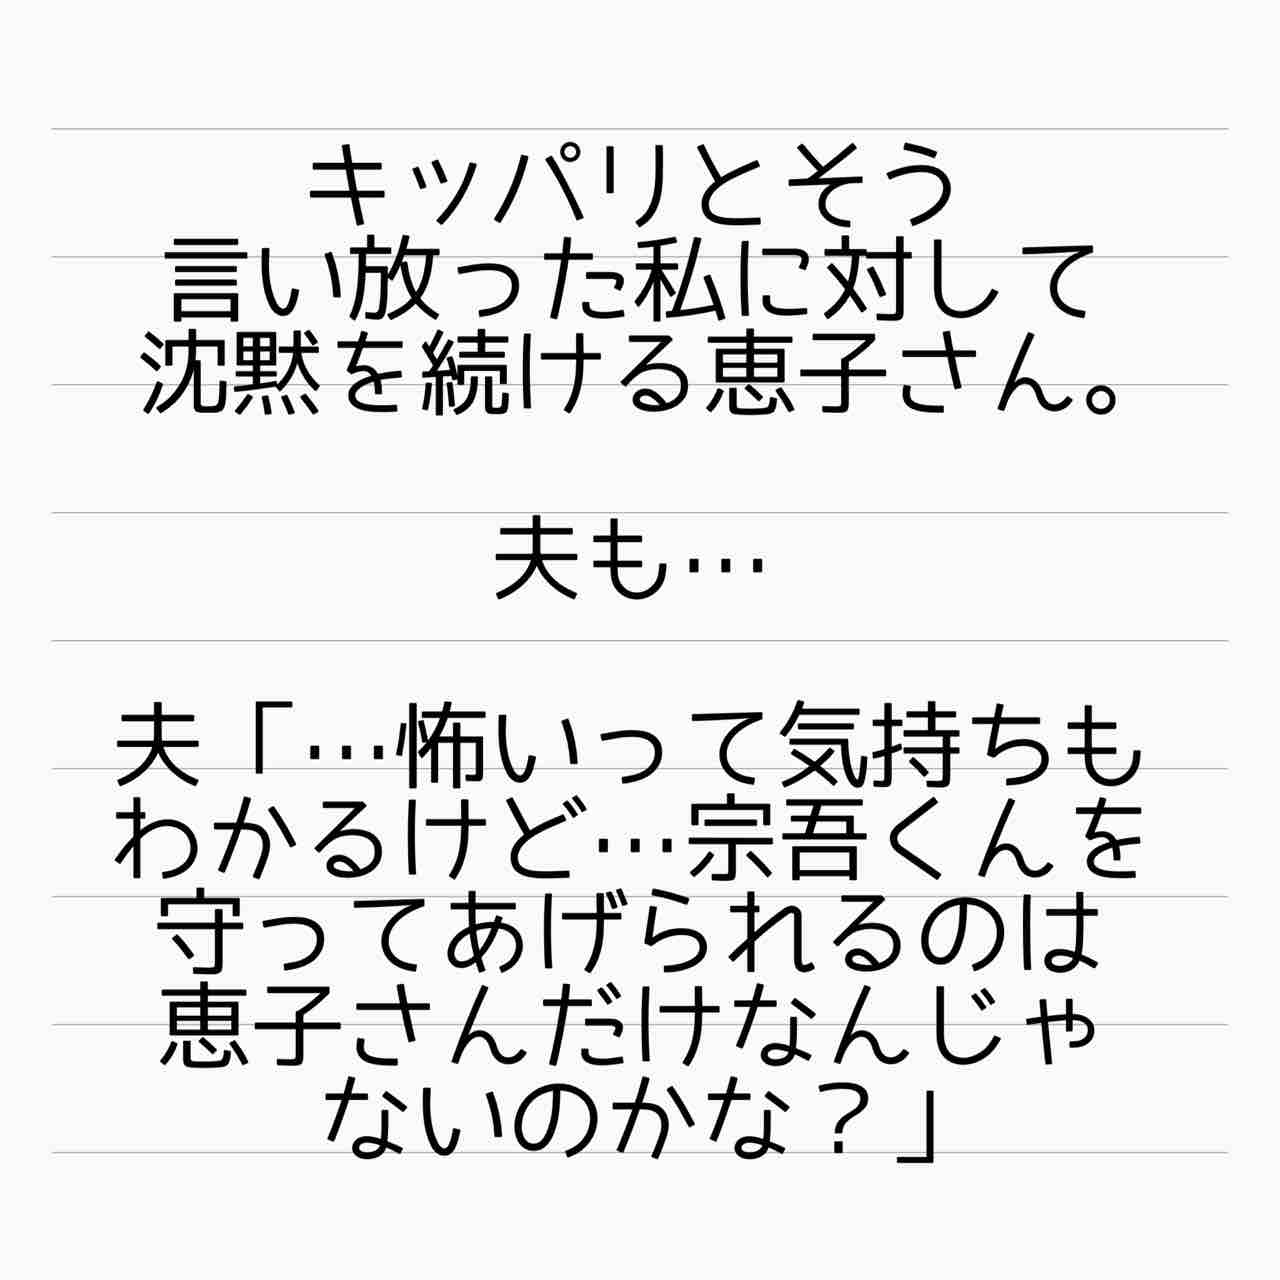 キッパリとそう
言い放った私に対して
沈黙を続ける恵子さん。
夫も…
夫「…怖いって気持ちも
わかるけど…宗吾くんを
守ってあげられるのは
恵子さんだけなんじゃ
ないのかな？」